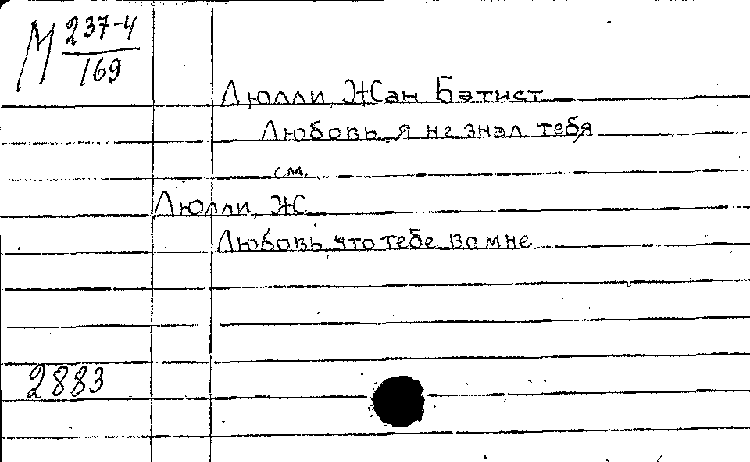 М 237-4
169
Люлли, Жан Бэтист
Любовь, я не знал тебя
см.
Люлли, Ж
Любовь, что тебе во мне
2883